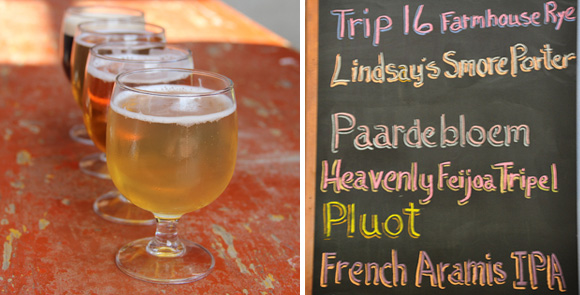 Trip 16 Farmhouse Rye
Lindsay's Smore Porter
Paardebloem
Heavenly Feijoa Tripel
Pluot
French Aramis IPA